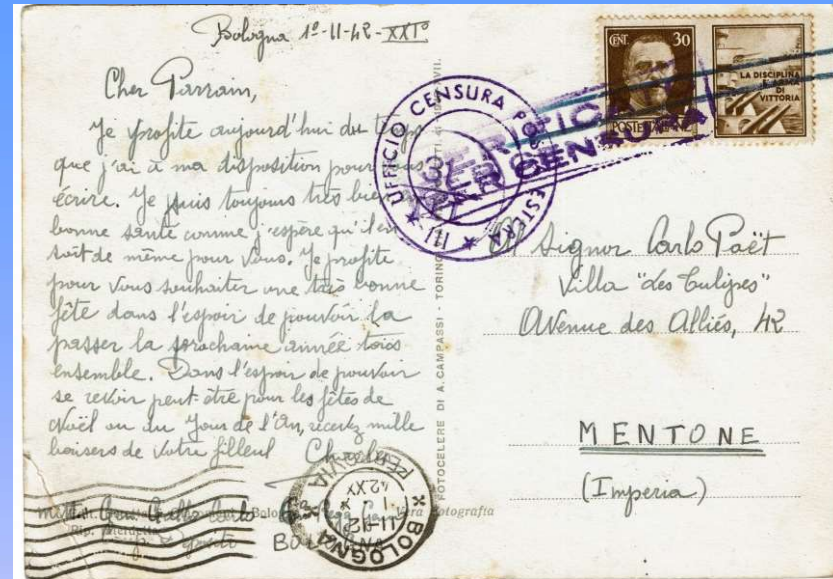 Bologna 1º-11-42-XXIº
Cher Parrain,
Je profite aujourd'hui du temps
que j'ai à ma disposition pour vous
écrire. Je suis toujours très bien en
bonne santé comme j'espère qu'il en
soit de même pour vous. Je profite
pour vous souhaiter une très bonne
fête dans l'espoir de pouvoir la
passer la prochaine année tous
ensemble. Dans l'espoir de pouvoir
se revoir peut-être pour les fêtes de
Noël ou du Jour de l'An, recevez mille
baisers de votre filleul Charles
mitt. Carlo
Vera Fotografia
BOLOGNA
FERROVIA
1-11-42 XXI
FOTOCELERE DI A. CAMPASSI - TORINO
UFFICIO CENSURA POSTA ESTERA
VERIFICATO
PER CENSURA
CENT. 30
POSTE ITALIANE
LA DISCIPLINA
È ARMA
DI
VITTORIA
Al Signor Carlo Paët
Villa "Les Tulipes"
Avenue des Alliés, 42
MENTONE
(Imperia)